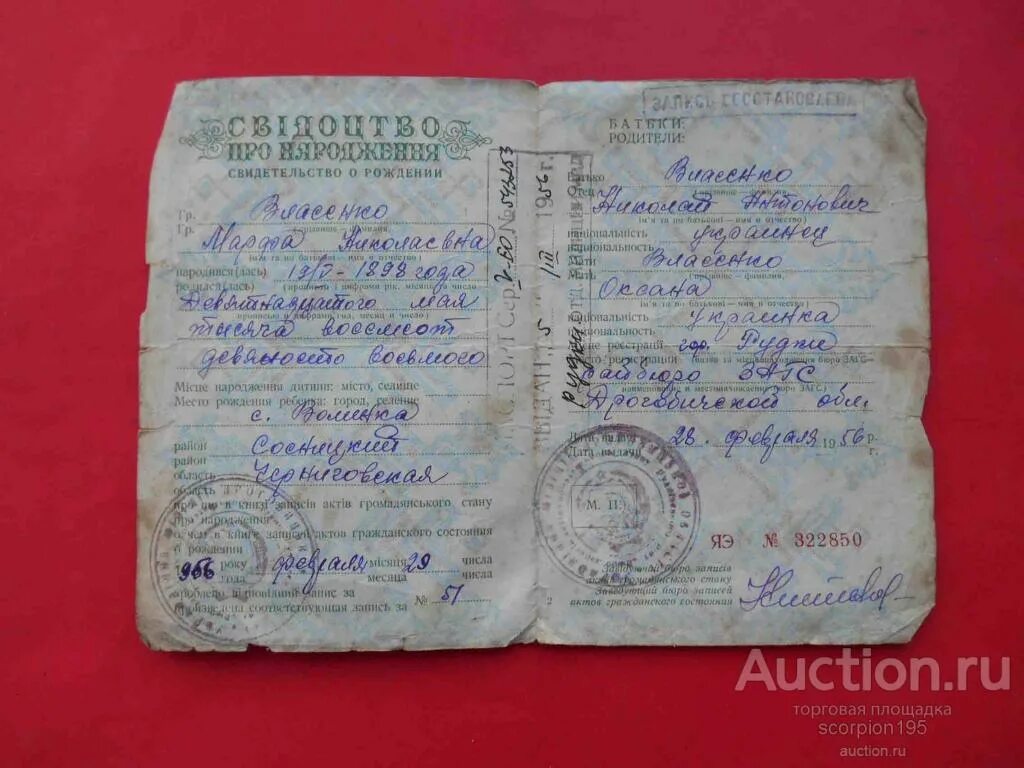 СВІДОЦТВО
ПРО НАРОДЖЕННЯ
СВИДЕТЕЛЬСТВО О РОЖДЕНИИ
Гр. Власенко
Гр. (прізвище — фамилия)
Марфа Николаевна
(ім'я та по батькові — имя и отчество)
народився(лась) 19/V - 1898 года
родился(лась) (прописом і цифрами рік, місяць і число)
девятнадцатого мая
(прописью и цифрами год, месяц и число)
тысяча восемсот
девяносто восьмого
Місце народження дитини: місто, селище
Место рождения ребенка: город, селение
с. Волинка
район
район Сосницкий
область Черниговская
область
про що в книзі записів актів громадянського стану
про народження
о чем в книге записи актов гражданского состояния
о рождении
року февраля місяця 29 числа
956 года месяца числа
зроблено відповідний запис за
произведена соответствующая запись за № 51
ЗАПИСЬ ВОССТАНОВЛЕНА
БАТЬКИ:
РОДИТЕЛИ:
Батько Власенко
Отец (прізвище — фамилия)
Николай Антонович
(ім'я та по батькові — имя и отчество)
національність украинец
национальность
Мати Власенко
Мать (прізвище — фамилия)
Оксана
(ім'я та по батькові — имя и отчество)
національність украинка
национальность
Місце реєстрації гор. Рудки
Место регистрации
Райбюро ЗАГС
наименование и местонахождение бюро ЗАГС)
Дрогобичской обл.
Дата видачі 28. февраля 1956 р.
Дата выдачи г.
М. П.
ЯЭ № 322850
Завідуючий бюро записів
актів громадянського стану
Заведующий бюро записей
актов гражданского состояния
2
№ 543253
1/III 1956 г.
Auction.ru
торговая площадка
scorpion195
auction.ru